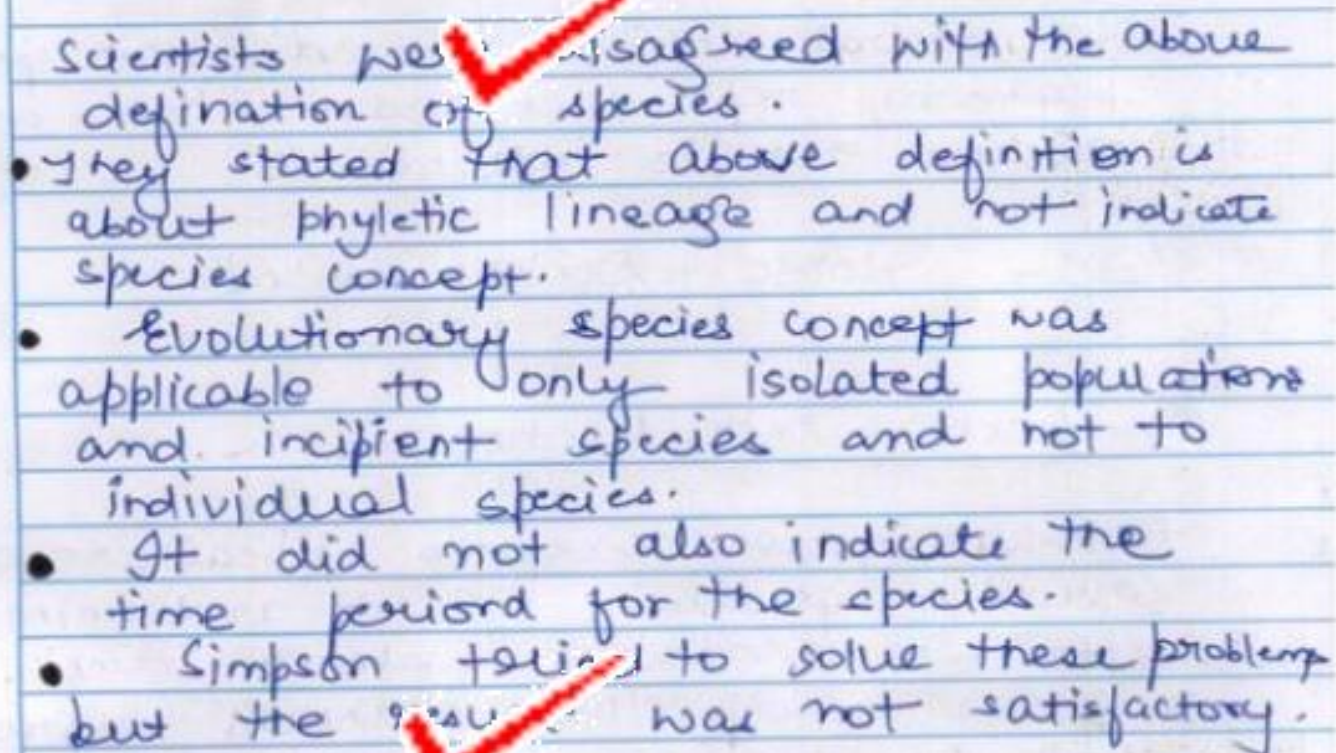 Scientists disagreed with the above
defination of species.
• They stated that above definition is
about phyletic lineage and not indicate
species concept.
• Evolutionary species concept was
applicable to only isolated populations
and incipient species and not to
individual species.
• It did not also indicate the
time periord for the species.
• Simpson tried to solve these problems
but the was not satisfactory.